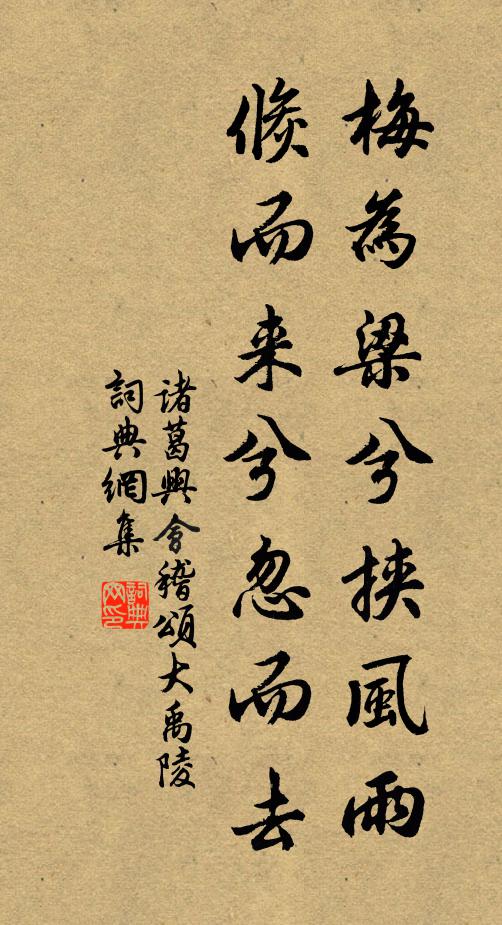 梅為梁兮挾風雨
倏而来兮忽而去
諸葛興會稽頌大禹陵
詞典網集
詞典網印